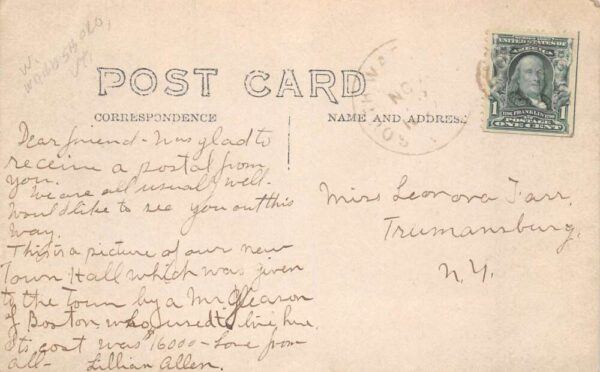 W.
Wardsboro,
Vt.
POST CARD
CORRESPONDENCE
NAME AND ADDRESS
UNITED STATES OF
AMERICA
FRANKLIN
1 1
POSTAGE
ONE CENT
SOUTH WAR
NO
Dear friend - Was glad to
receive a postal from
you.
We are all usually well.
Would like to see you out this
way.
This is a picture of our new
Town Hall which was given
to the Town by a Mr Gleason
of Boston who used to live here.
Its cost was $16000 - Love from
all - Lillian Allen.
Miss Leonora Farr.
Trumansburg,
N.Y.